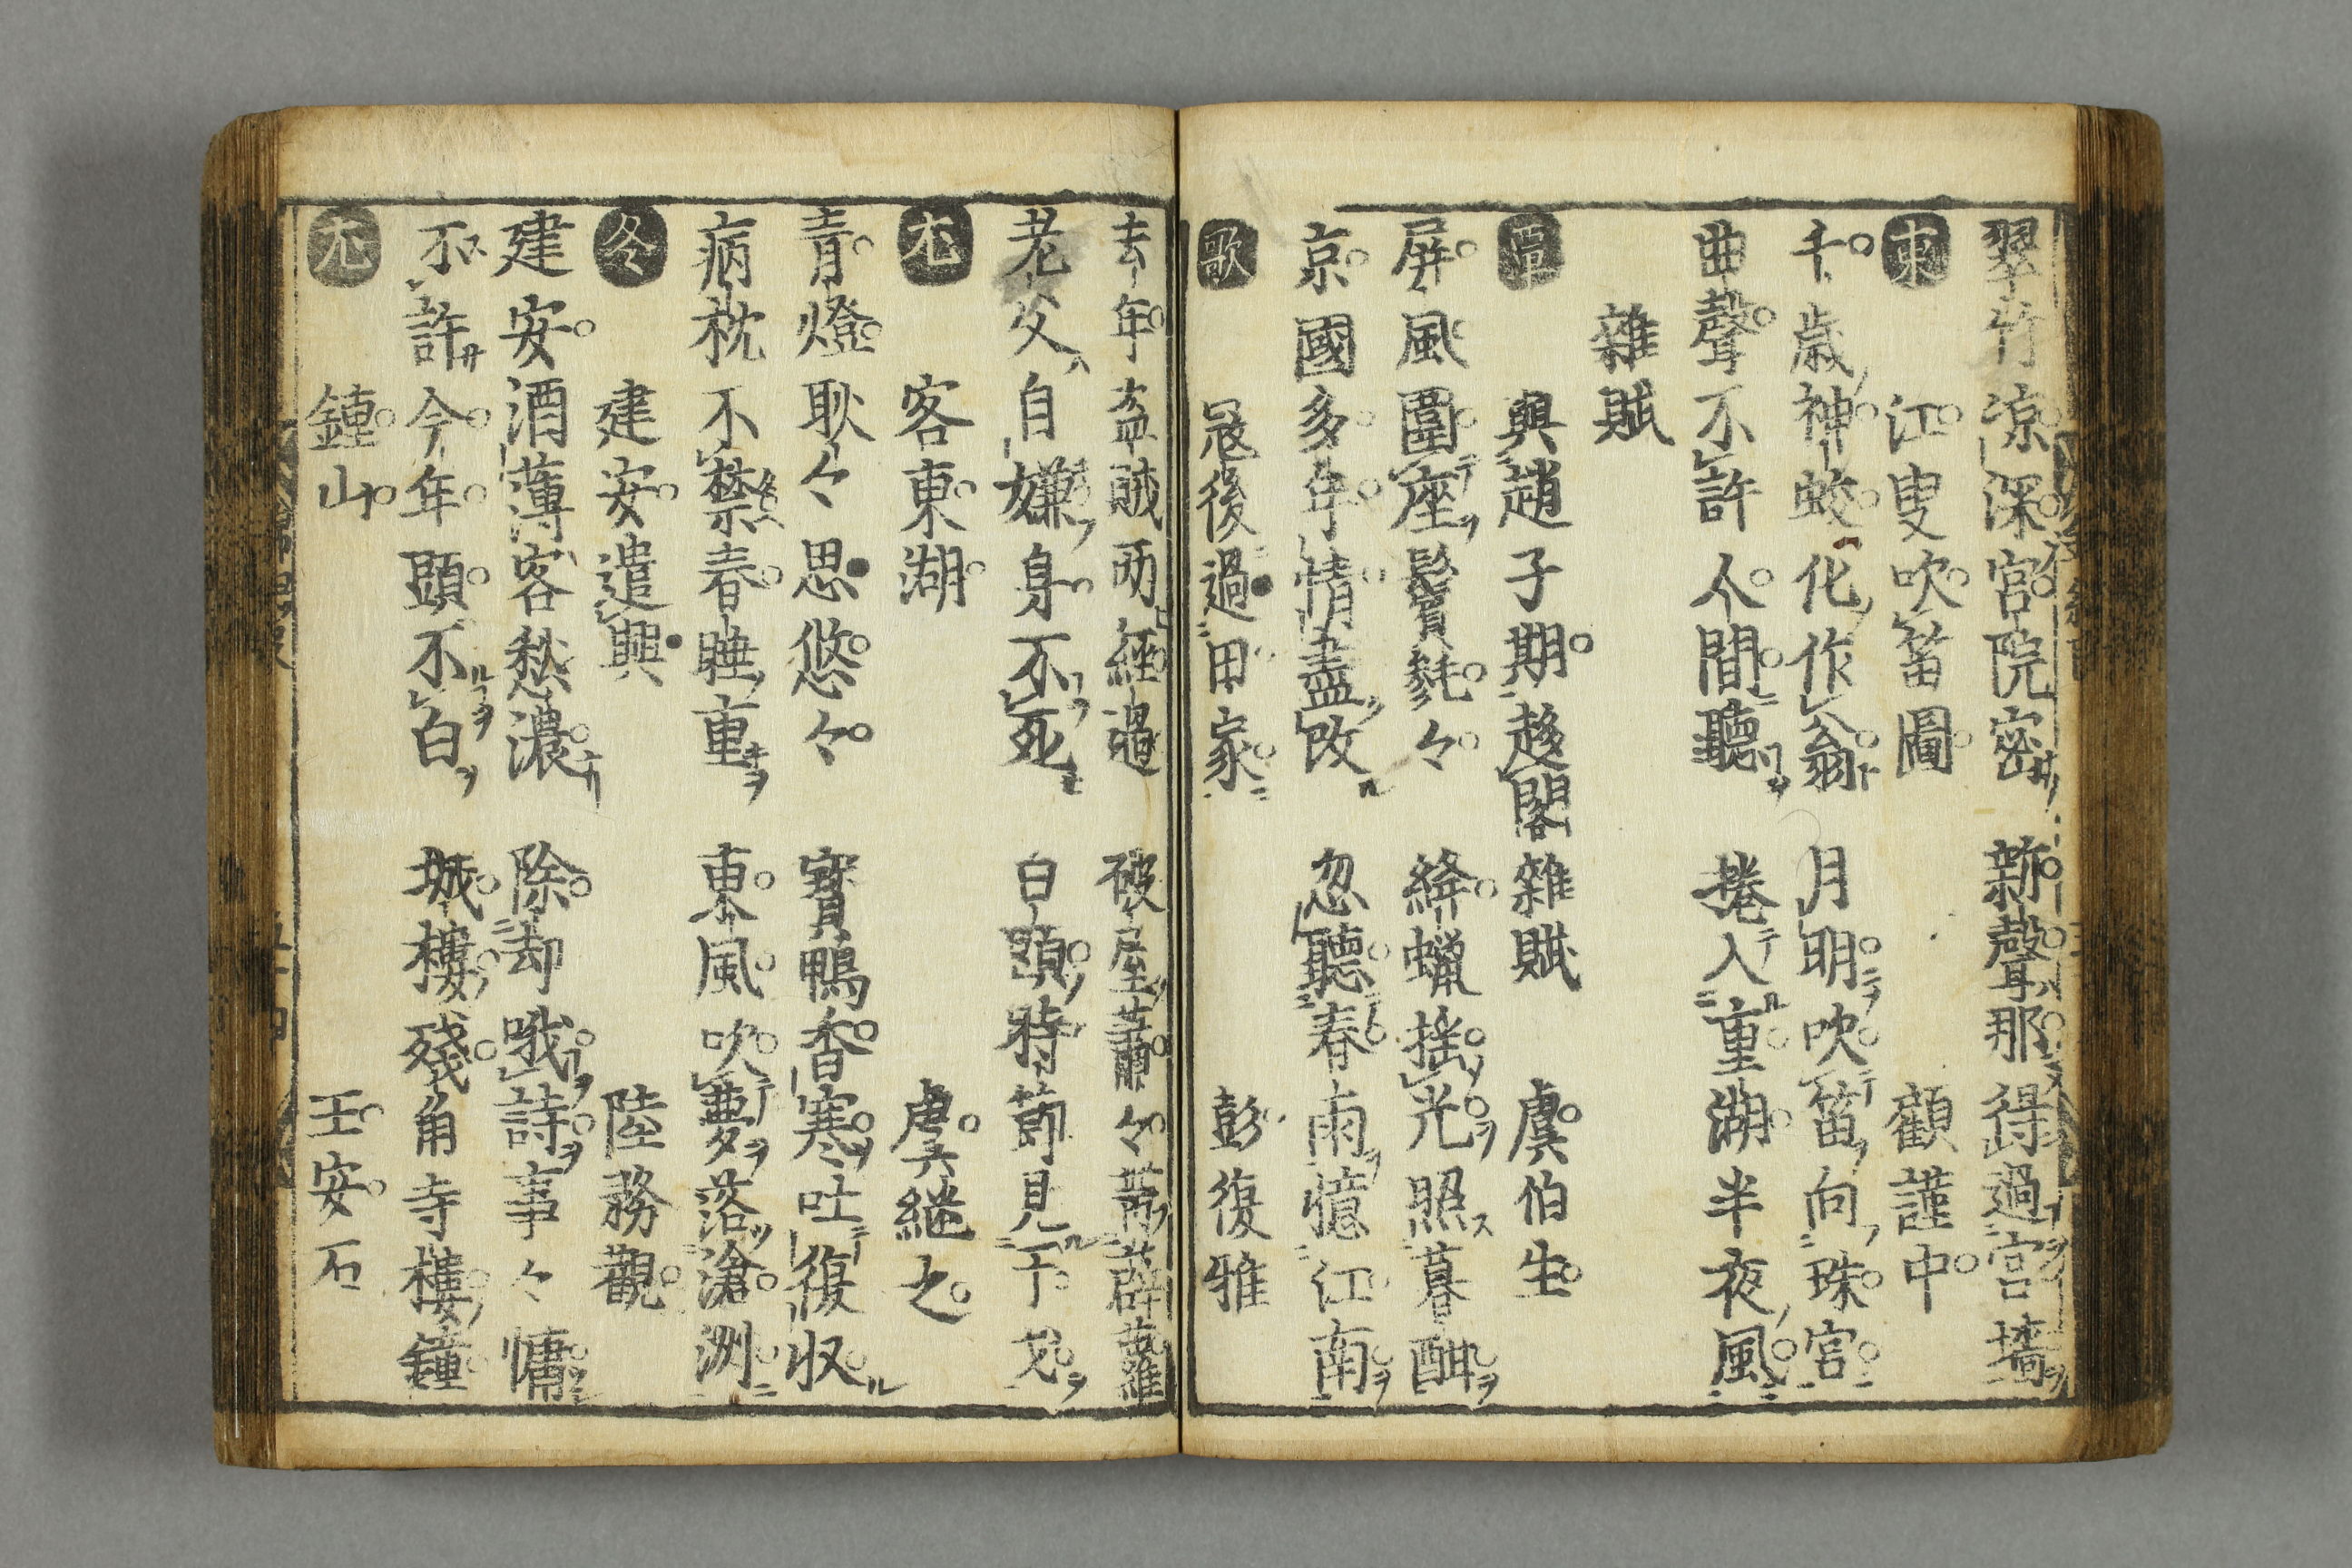 翠竹涼深宮院密 新聲那得過宮墻
東 江叟吹笛圖 顧謹中
千歳神蛟化作翁 月明吹笛向珠宮
曲聲不許人間聽 捲入重湖半夜風
雜賦
與趙子期趍閣雜賦 虞伯生
屏風圍座鬢毿々 絳蠟搖光照暮酣
京國多年情盡改 忽聽春雨憶江南
歌 冦後過田家 彭復雅
去年盗賊兩經過 破屋蕭々帶薜蘿
老父自嫌身不死 白頭特節見干戈
尤 客東湖 虞继之
青燈耿々思悠々 寳鴨香寒吐復収
病枕不禁春睡重 東風吹夢落滄洲
冬 建安遣興 陸務觀
建安酒薄客愁濃 除却哦詩事々慵
不許今年頭不白 城樓殘角寺樓鐘
元 鍾山 王安石